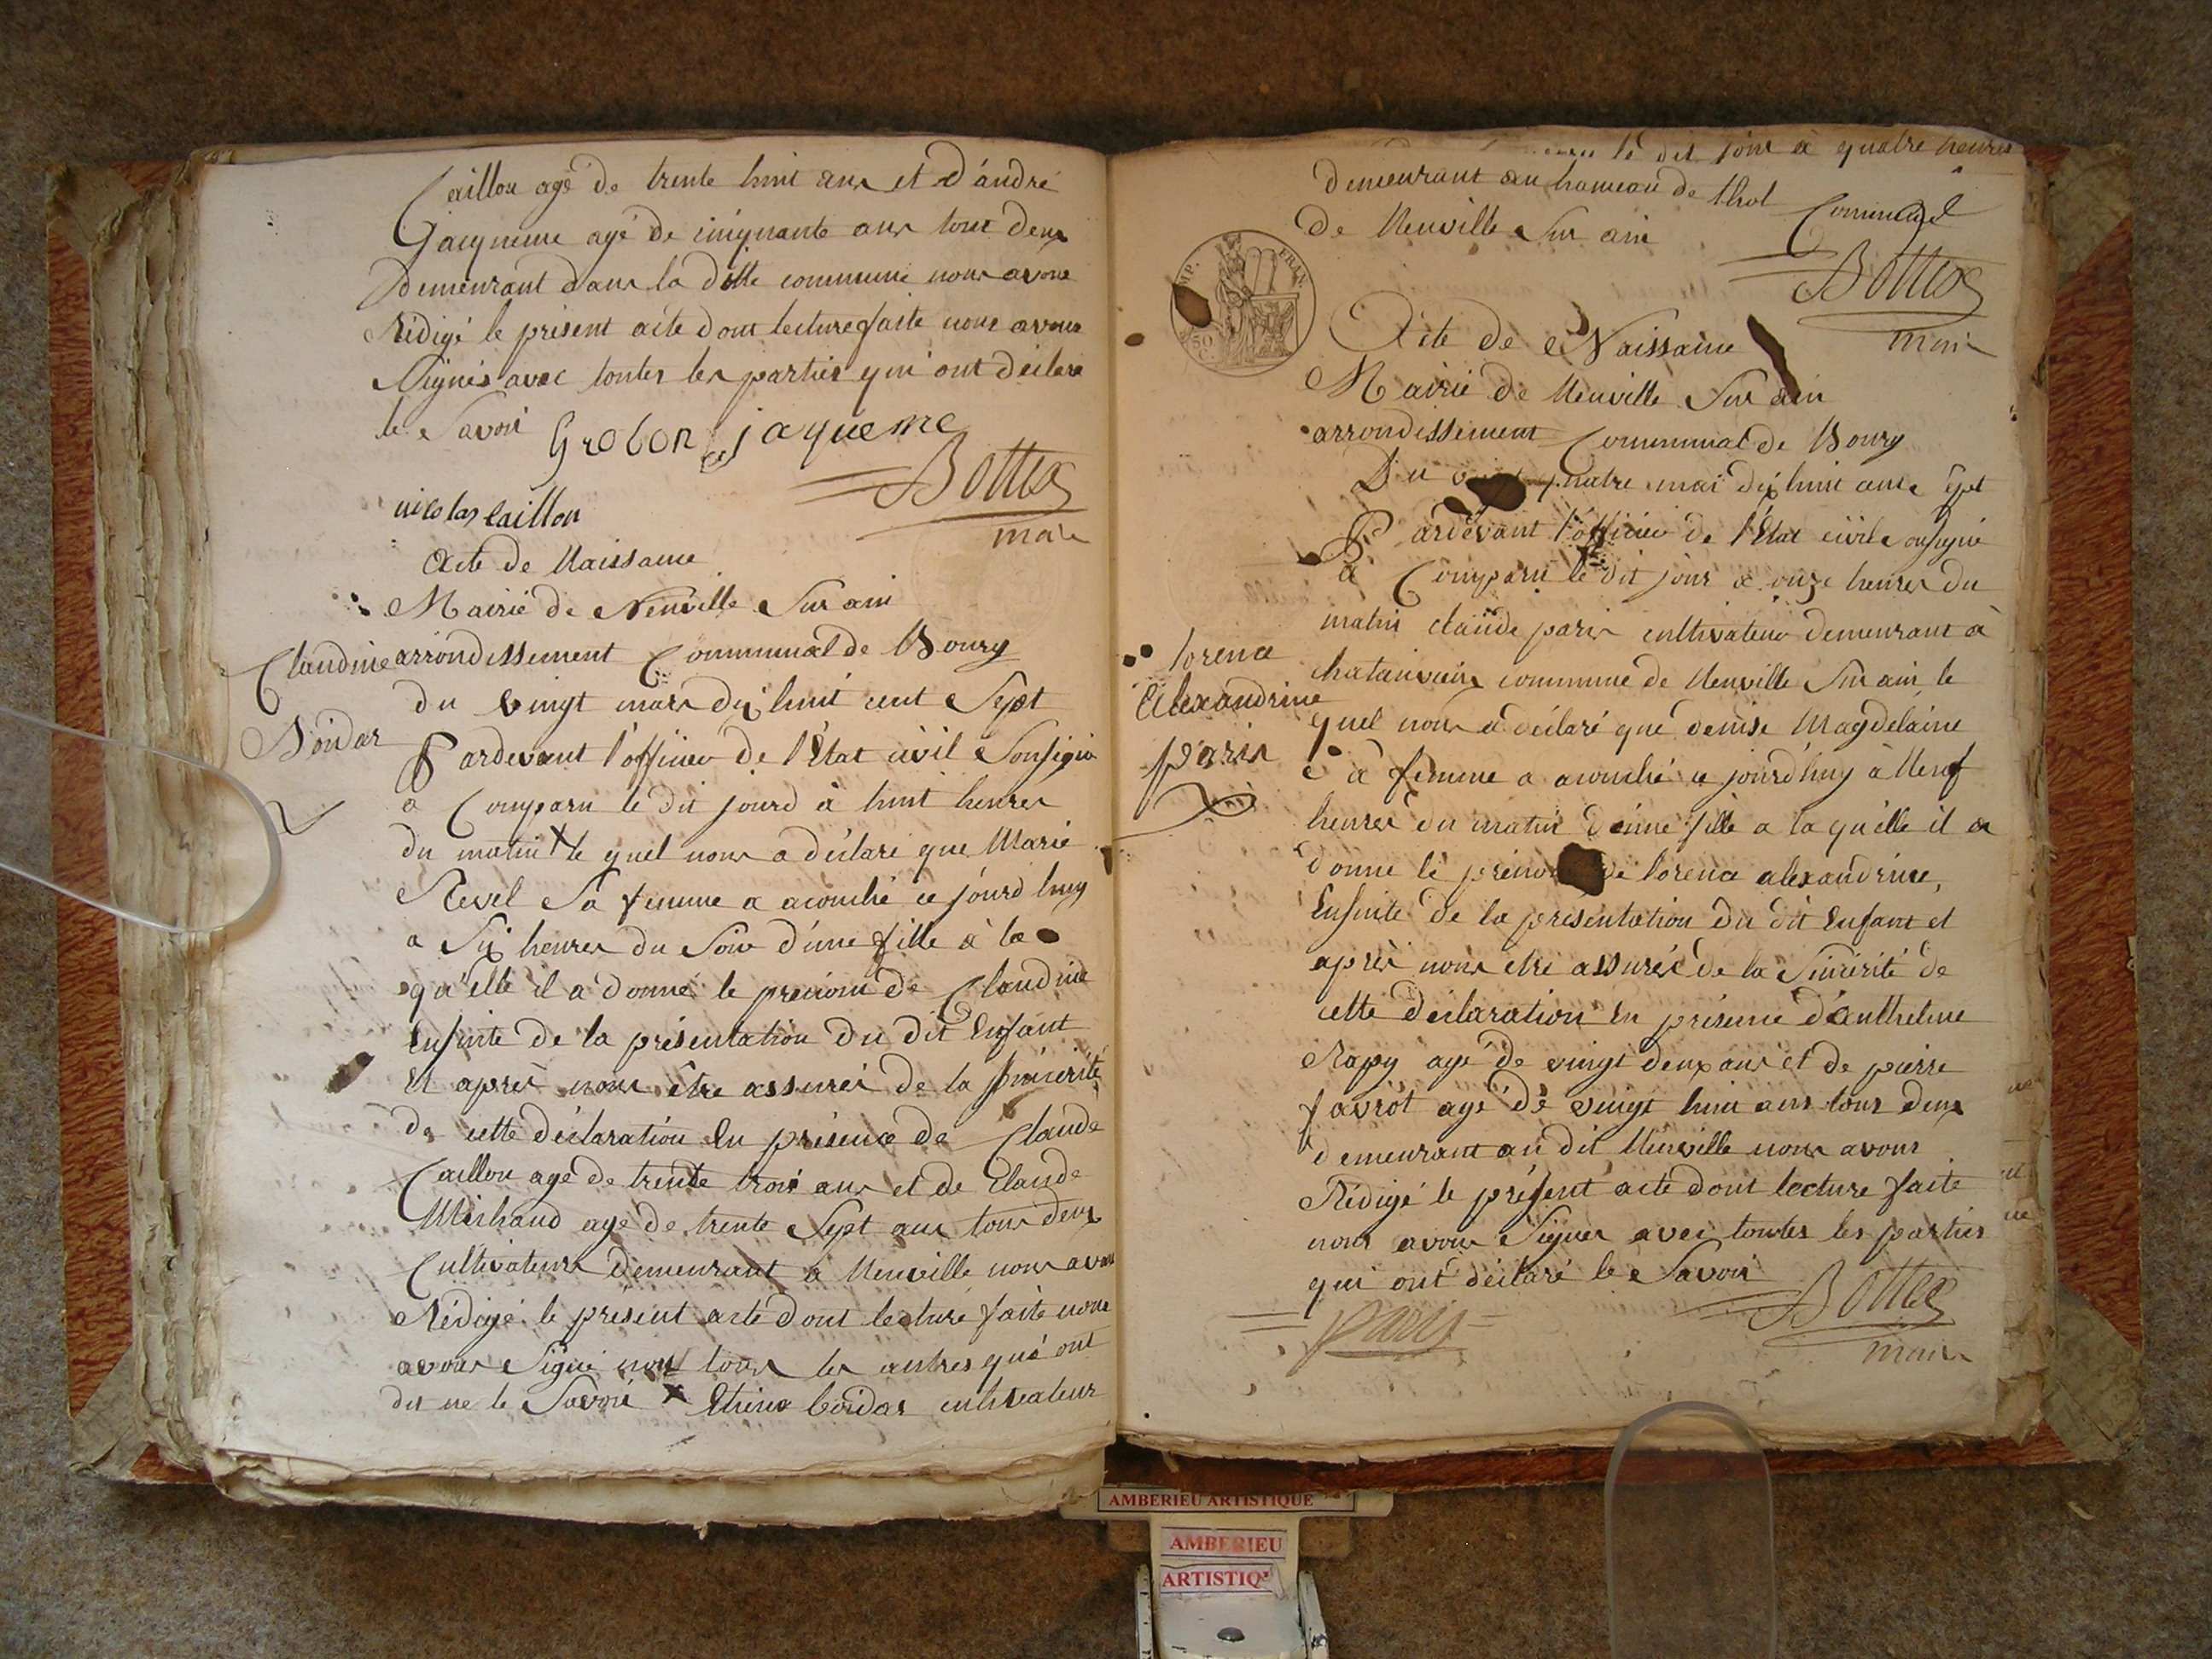 Caillou agé de trente huit ans et d'andré
Gacqueme agé de cinquante ans tout deux
Demeurant dans la ditte commune nous avons
Rédigé le présent acte dont lecture faite nous avons
Signés avec toutes les parties qui ont déclaré
le Savoir Grobon jaqueme
Bottex
nicolas caillou
maire
Acte de Naissance
Mairie de Neuville Sur ain
Claudine arrondissement Communal de Bourg
du vingt mars dix huit cent Sept
Boidar
Pardevant l'officier de l'Etat civil Sousigné
a Comparu le dit jourd à huit heures
du matin X le quel nous a déclaré que Marie
Revel Sa femme a acouché ce jourd huy
a Six heures du Soir d'une fille à la
qu'elle il a donné le prénom de Claudine
Ensuite de la présentation du dit Enfant
Et après nous être assurés de la Sincérité
de cette déclaration En présence de Claude
Caillou agé de trente trois ans et de Claude
Michaud agé de trente Sept ans tous deux
Cultivateurs demeurant à Neuville nous avons
Rédigé le présent acte dont lecture faite nous
avons Signé non tous les autres qui ont
dit ne le Savoir X Etiene boidar cultivateur
le dit jour à quatre heures
demeurant au hameau de thol
Communal
de Neuville Sur ain
Bottex
maire
IMP. FRAN.
50 C.
Acte de Naissance
Mairie de Neuville Sur ain
arrondissement Communal de Bourg
Du quatre mai dix huit cent Sept
Pardevant l'officier de l'Etat civil Sousigné
a Comparu le dit jour à onze heures du
matin claude paris cultivateur demeurant à
lorence
chatauvieux commune de Neuville Sur ain le
Alexandrine
quel nous a déclaré que denise Magdelaine
paris
Sa femme a acouché ce jourd'huy à Neuf
heures du matin d'une fille a la quelle il a
donné le prénom de lorence alexandrine,
Ensuite de la présentation du dit Enfant et
après nous etre assurés de la Sincérité de
cette déclaration En présence d'anthelme
Rapy agé de vingt deux ans et de pierre
favrot agé de vingt huit ans tous deux
demeurant au dit Neuville nous avons
Rédigé le présent acte dont lecture faite
nous avons Signer avec toutes les parties
qui ont déclaré le Savoir
paris
Bottex
maire
AMBERIEU ARTISTIQUE
AMBERIEU
ARTISTIQ